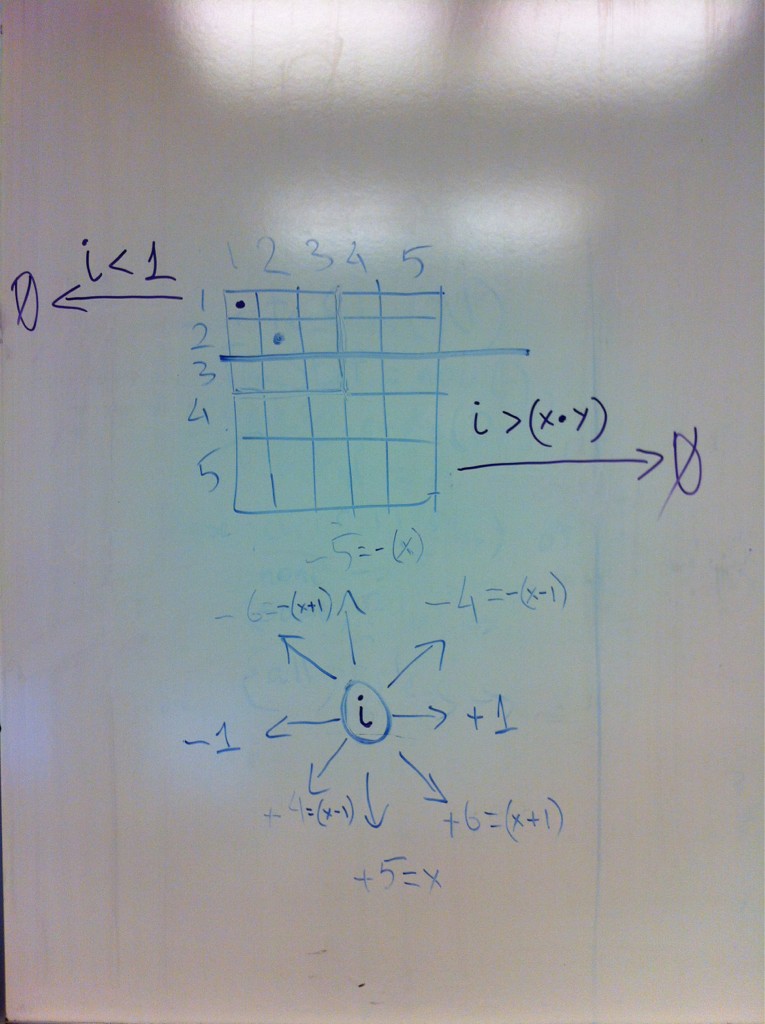 i < 1
∅
1 2 3 4 5
1
2
3
4
5
i > (x • y)
∅
-5=-(x)
-6=-(x+1)
-4=-(x-1)
-1
i
+1
+4=(x-1)
+6=(x+1)
+5=x